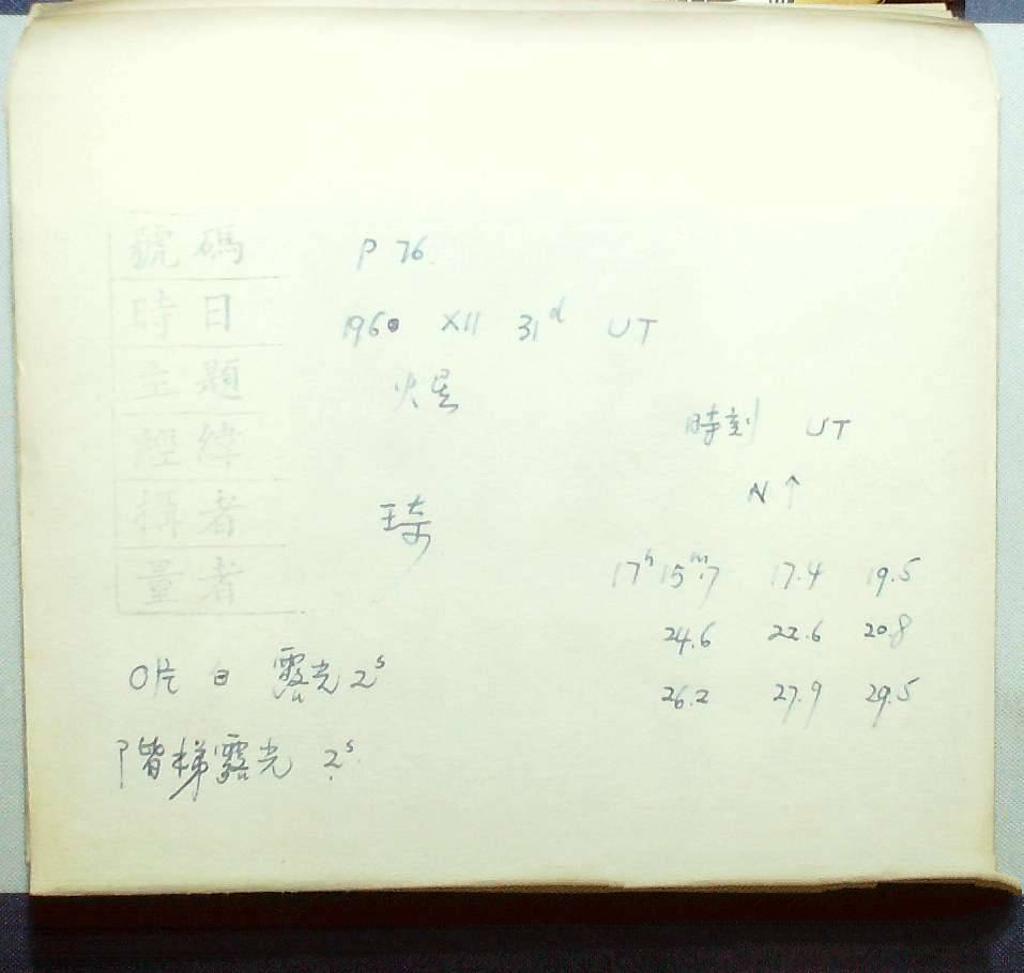 號碼 P 76.
時日 1960 XII 31d UT
主題 火星
經緯
攝者 琦
量者
時刻 UT
N ↑
17h 15m.7 17.4 19.5
24.6 22.6 20.8
26.2 27.9 29.5
O片 日 露光 2s
階梯露光 2s